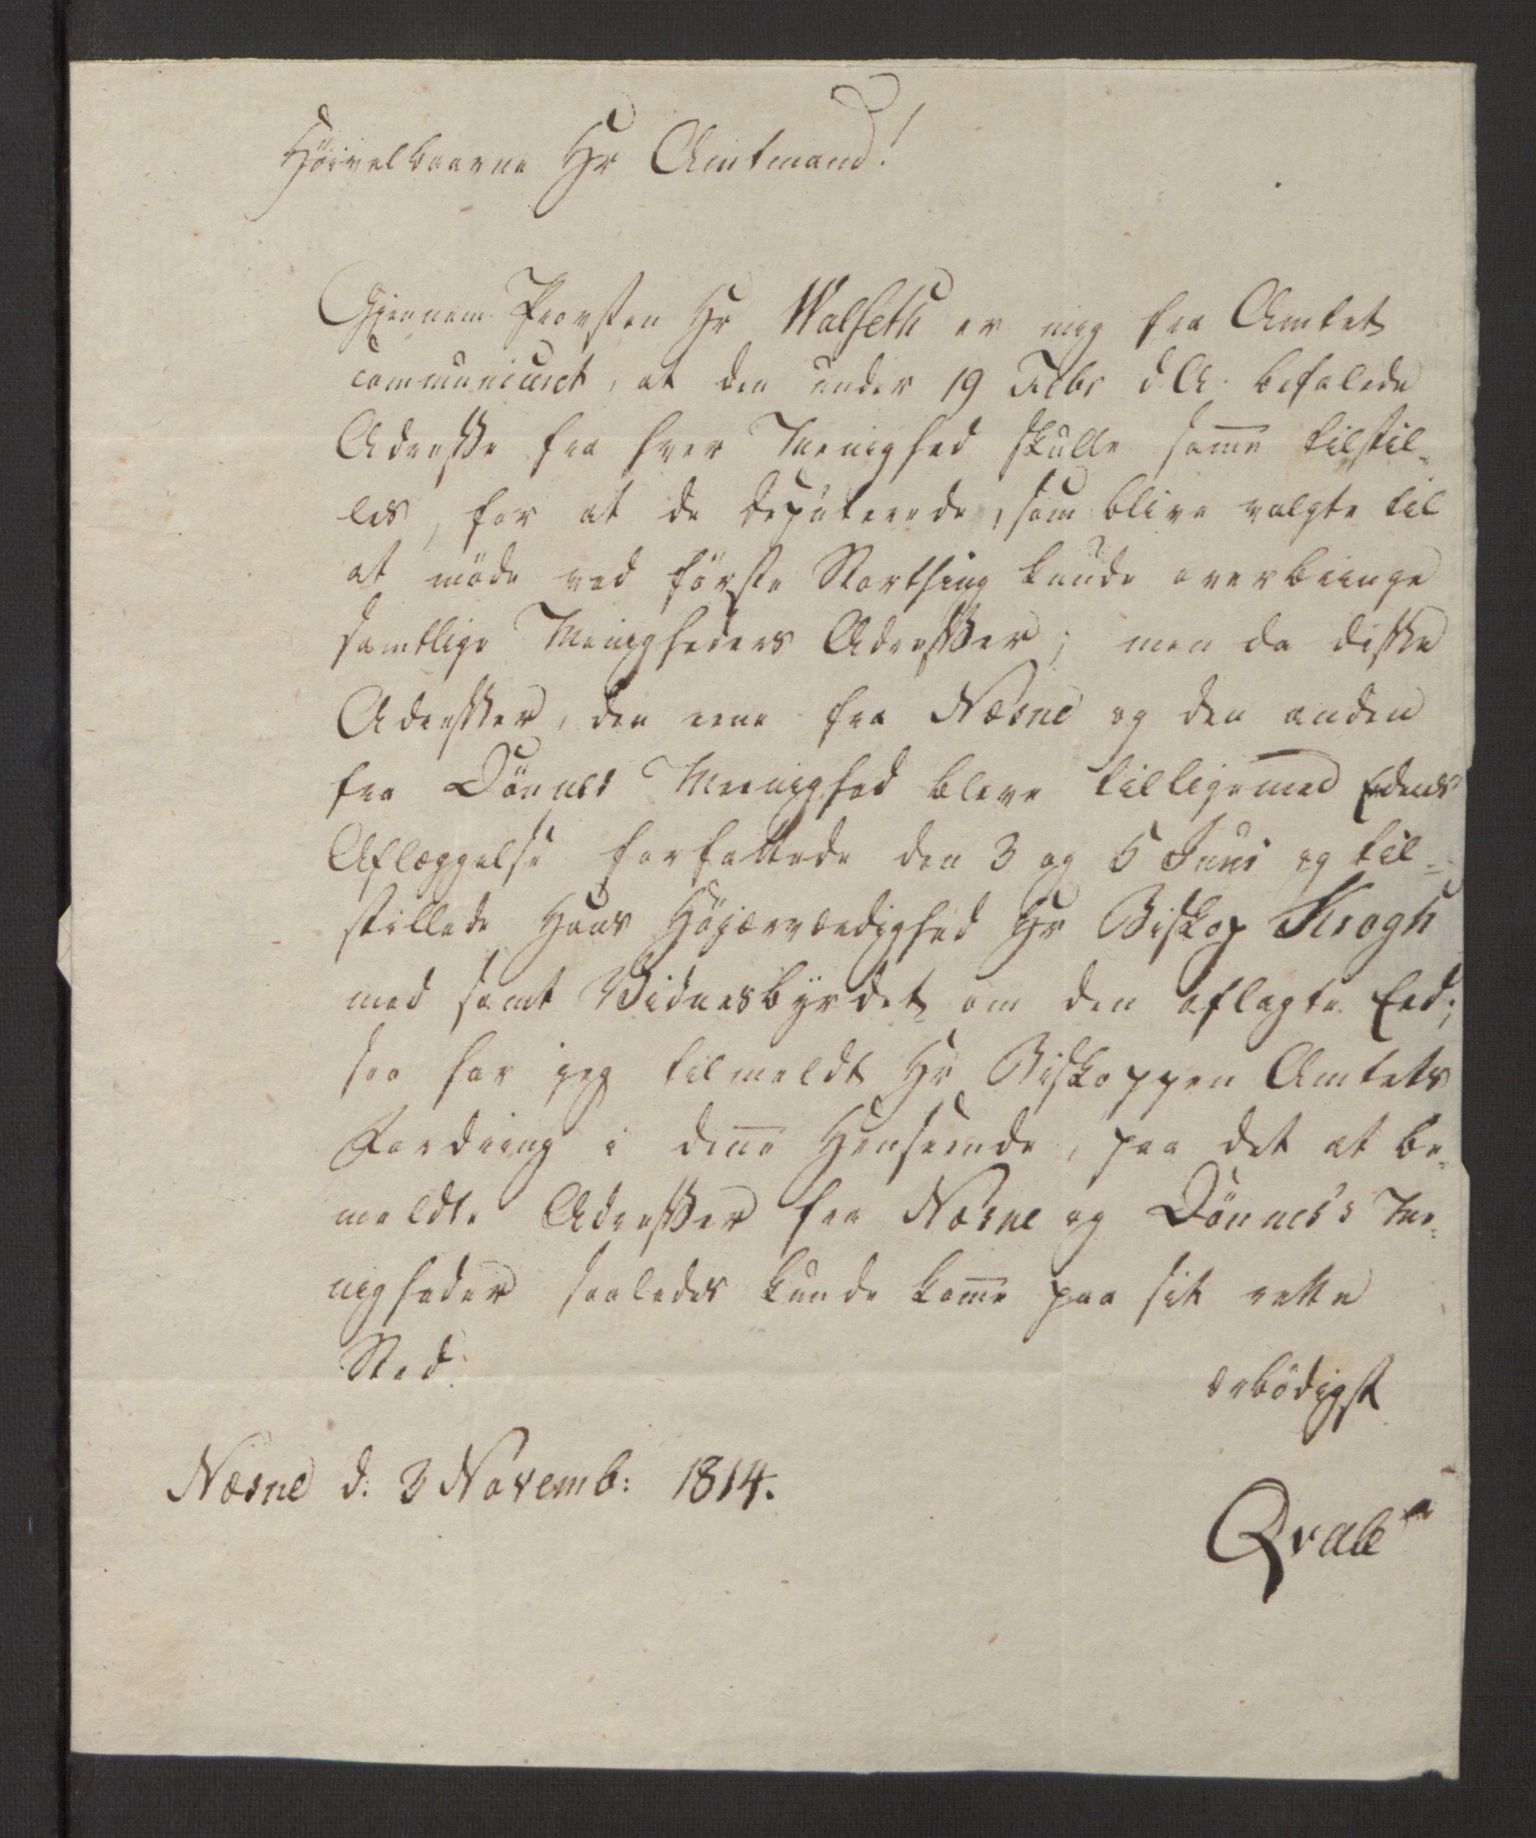 Höivelbaarne Hr Amtmand!
Gjennem Provsten Hr Walseth er mig fra Amtet
communiceret, at den under 19 Febr d. A. befalede
Adresse fra hver Menighed skulle samme tilstil-
les, for at de Deputerede, som blive valgte til
at möde ved förste Storthing kunde overbringe
samtlige Menigheders Adresser; men da disse
Adresser, den eene fra Næsne og den anden
fra Dönnes Meenighed bleve tilligemed Edens
Aflæggelse forfattede den 3 og 5 Juni og til-
stillede Hans Höjærværdighed Hr Biskop Krogh
med samt Vidnesbyrdet om den aflagte Eed;
saa har jeg tilmeldt Hr Biskoppen Amtets
Fordring i denne Henseende, paa det at be-
meldte Adresser fra Næsne og Dönnes's Me-
nigheder saaledes kunde komme paa sit rette
Sted.
ærbödigst
Næsne d. 3 Novemb: 1814.
Qvale